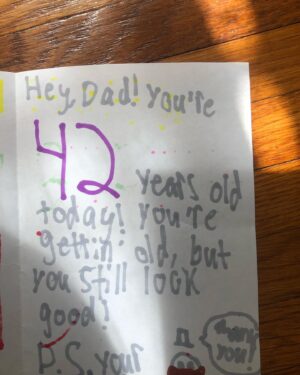 Hey, Dad! You're
42
years old
today! You're
gettin' old, but
you still look
good!
P.S. your
thank
you!